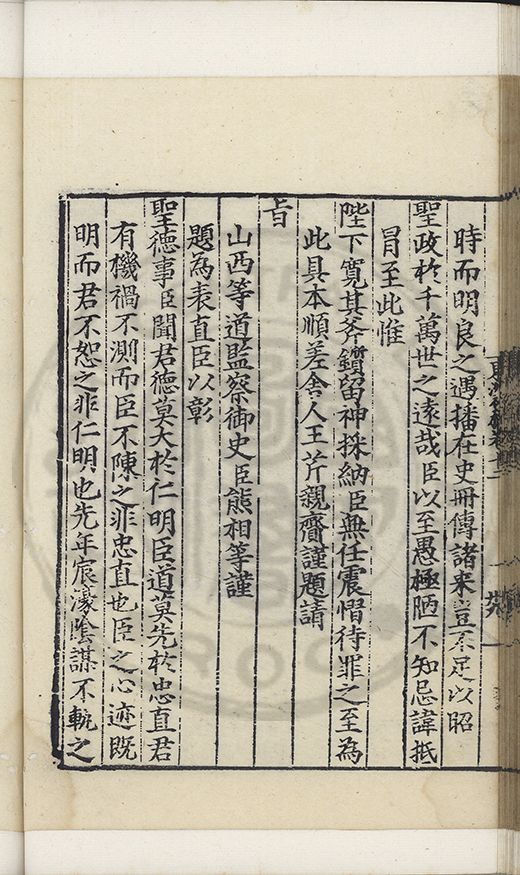 時而明良之遇播在史冊傳諸來豈不足以昭
聖政於千萬世之遠哉臣以至愚極陋不知忌諱抵
冒至此惟
陛下寬其斧鑕留神採納臣無任震慴待罪之至為
此具本順差舍人王芹親齎謹題請
旨
山西等道監察御史臣熊相等謹
題為表直臣以彰
聖德事臣聞君德莫大於仁明臣道莫先於忠直君
有機禍不測而臣不陳之非忠直也臣之心迹既
明而君不恕之非仁明也先年宸濠陰謀不軌之